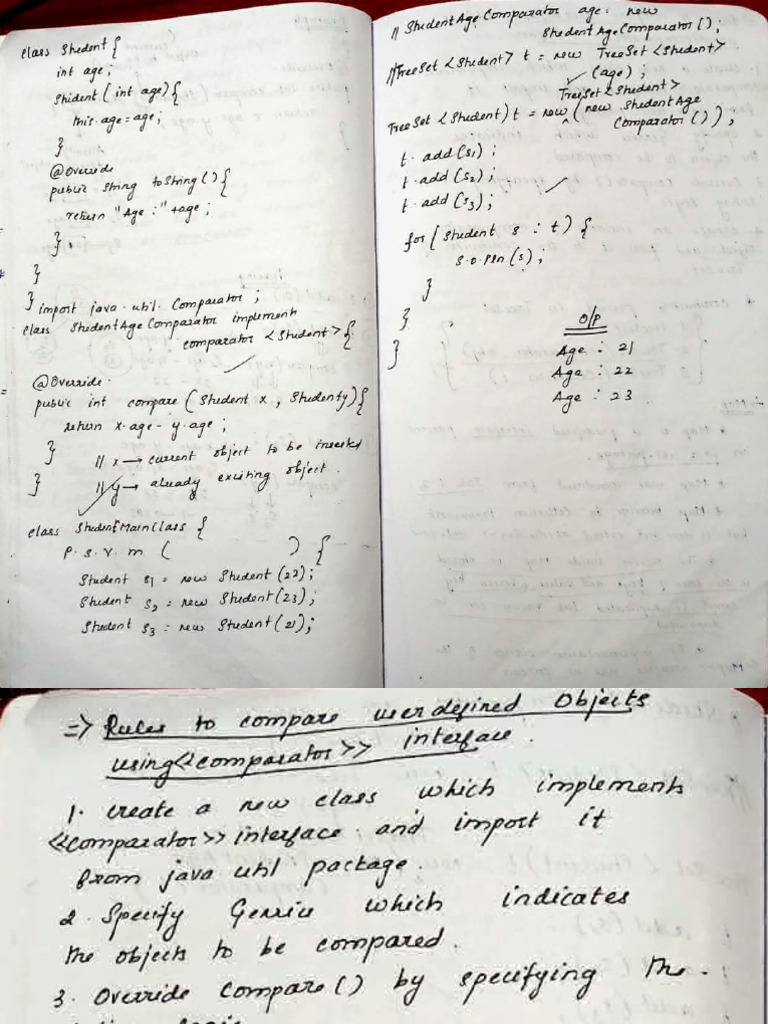 class Student {
int age;
Student (int age) {
this.age = age;
}
@Override
public String toString() {
return "Age : " + age ;
}
}
} import java.util.Comparator ;
class StudentAgeComparator implements
comparator <Student> {
@Override
public int compare (Student x, Student y) {
return x.age - y.age ;
}
// x → current object to be inserted
} // y → already existing object.
class StudentMainClass {
P.s.v.m ( ) {
Student s1 = new Student (22);
Student s2 = new Student (23);
Student s3 = new Student (21);
// StudentAgeComparator age = new
StudentAgeComparator();
// TreeSet <Student> t = new TreeSet <Student>
(age) ;
TreeSet <Student>
TreeSet <Student> t = new (new StudentAge
Comparator ()) ;
t.add (s1) ;
t.add (s2) ;
t.add (s3) ;
for (Student s : t) {
S.o.pln (s) ;
}
}
}
O/P
Age : 21
Age : 22
Age : 23
=> Rules to compare userdefined Objects
using <<comparator>> interface.
1. create a new class which implements
<<comparator>> interface and import it
from java util package.
2. Specify Generic which indicates
the objects to be compared.
3. Override compare() by specifying the